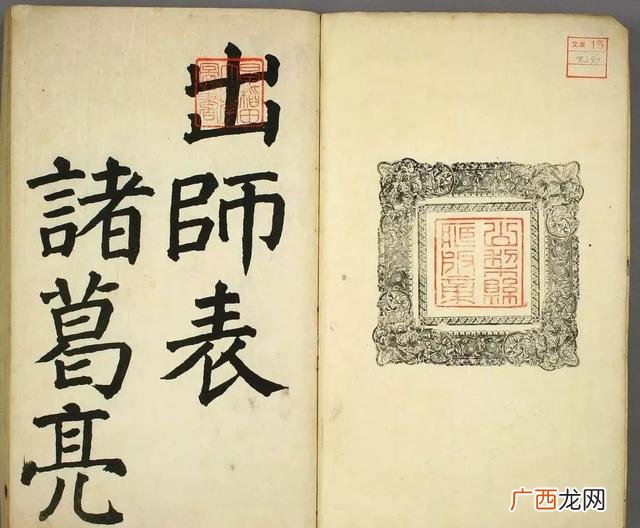 文庫 15
出師表
諸葛亮
广西龙网